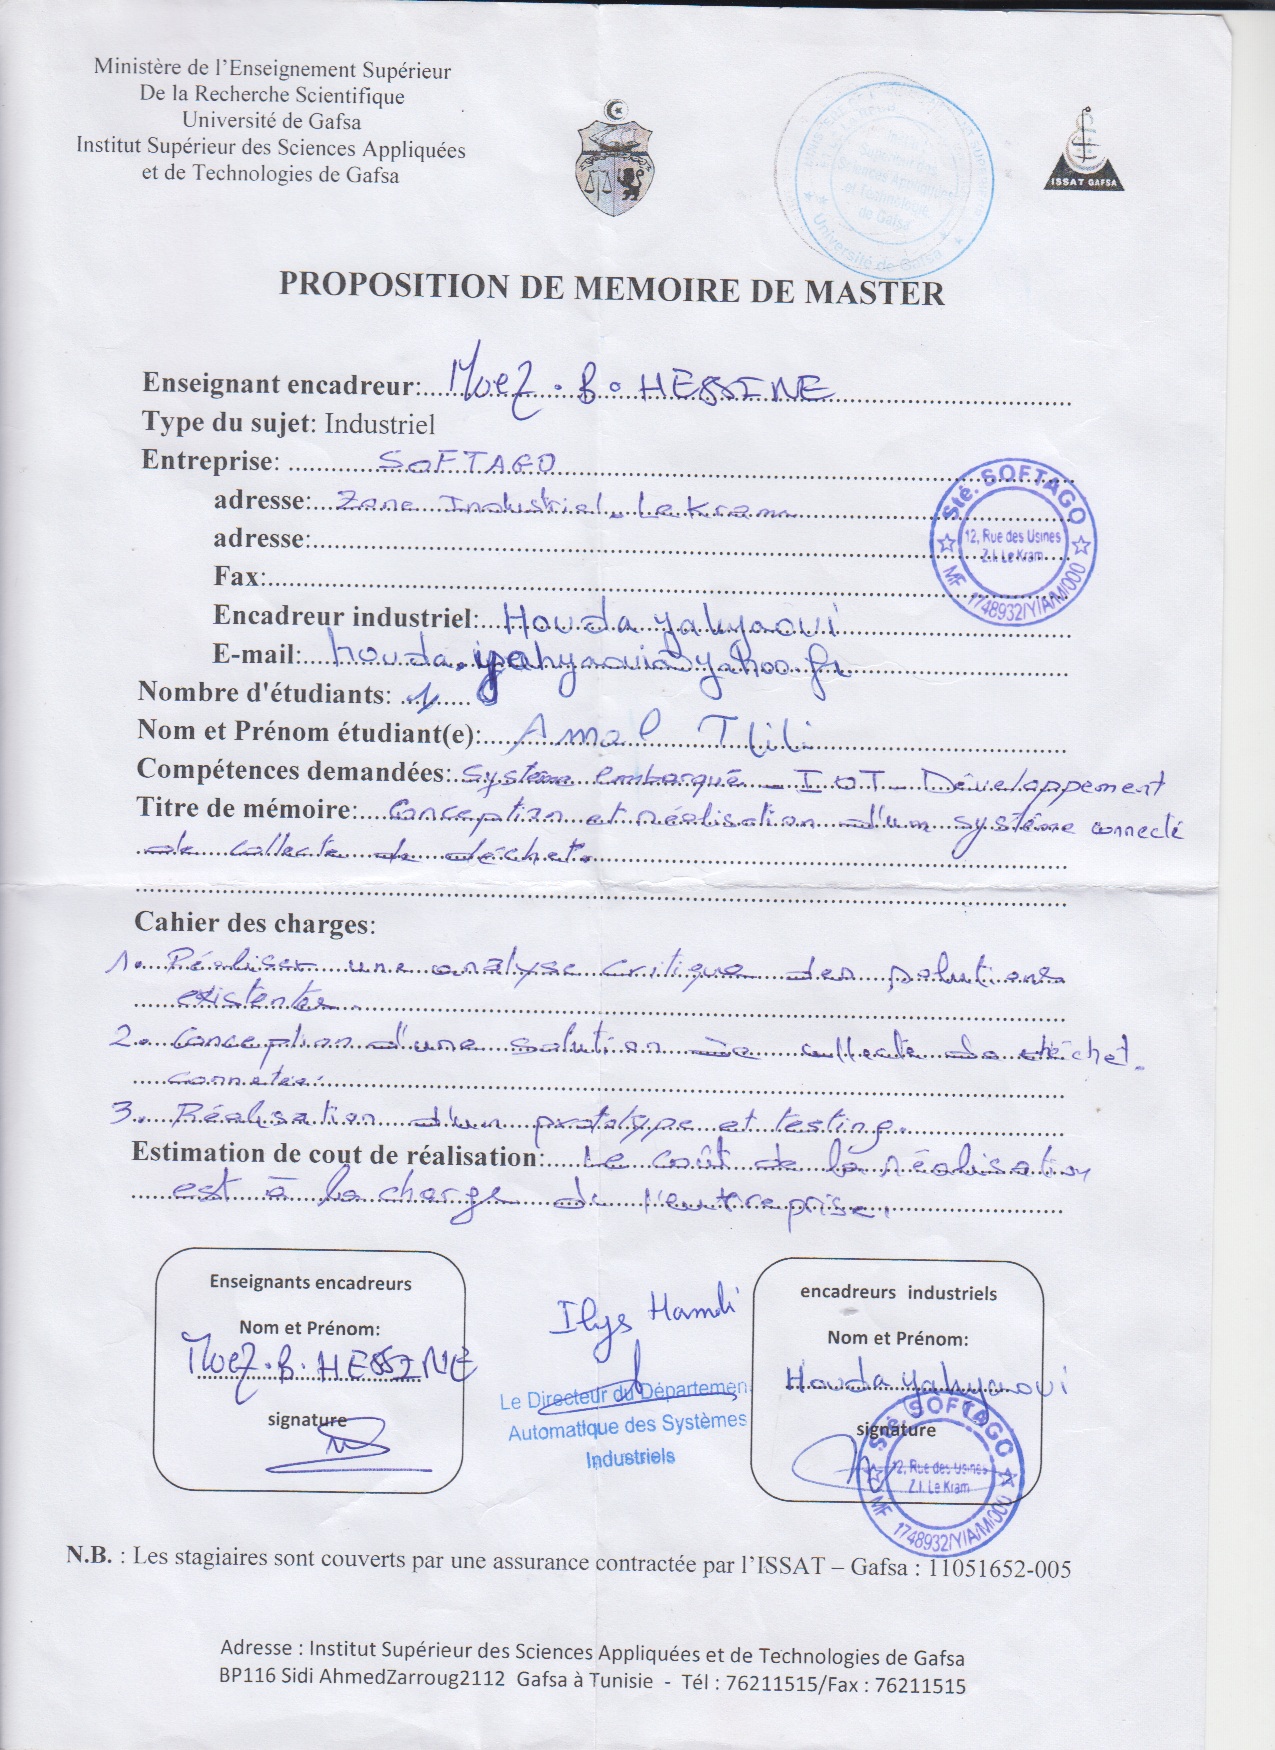 Ministère de l'Enseignement Supérieur
De la Recherche Scientifique
Université de Gafsa
Institut Supérieur des Sciences Appliquées
et de Technologies de Gafsa
Supérieur des
Sciences Appliquées
et Technologie
de Gafsa
Université de Gafsa
ISSAT GAFSA
PROPOSITION DE MEMOIRE DE MASTER
Enseignant encadreur: Moez . B . HESSINE
Type du sujet: Industriel
Entreprise: SOFTAGO
adresse: Zone Industriel. Le Kram
adresse:
Fax:
Encadreur industriel: Houda yahyaoui
E-mail: houda.yahyaoui@yahoo.fr
Sté. SOFTAGO
12, Rue des Usines
Z.I. Le Kram
MF 1748932/Y/A/M/000
Nombre d'étudiants: 1
Nom et Prénom étudiant(e): Amal Tlili
Compétences demandées: Système embarqué - IOT - Développement
Titre de mémoire: Conception et réalisation d'un système connecté
de collecte de déchet.
Cahier des charges:
1. Réaliser une analyse critique des solutions
existentes.
2. Conception d'une solution de collecte de déchet.
connetée.
3. Réalisation d'un prototype et testing.
Estimation de cout de réalisation: Le coût de la réalisation
est à la charge de l'entreprise.
Enseignants encadreurs
Nom et Prénom:
Moez . B . HESSINE
signature
Ilys Hamdi
Le Directeur du Départemen
Automatique des Systèmes
Industriels
encadreurs industriels
Nom et Prénom:
Houda yahyaoui
signature
Sté. SOFTAGO
12, Rue des Usines
Z.I. Le Kram
MF 1748932/Y/A/M/000
N.B. : Les stagiaires sont couverts par une assurance contractée par l'ISSAT – Gafsa : 11051652-005
Adresse : Institut Supérieur des Sciences Appliquées et de Technologies de Gafsa
BP116 Sidi AhmedZarroug2112 Gafsa à Tunisie - Tél : 76211515/Fax : 76211515